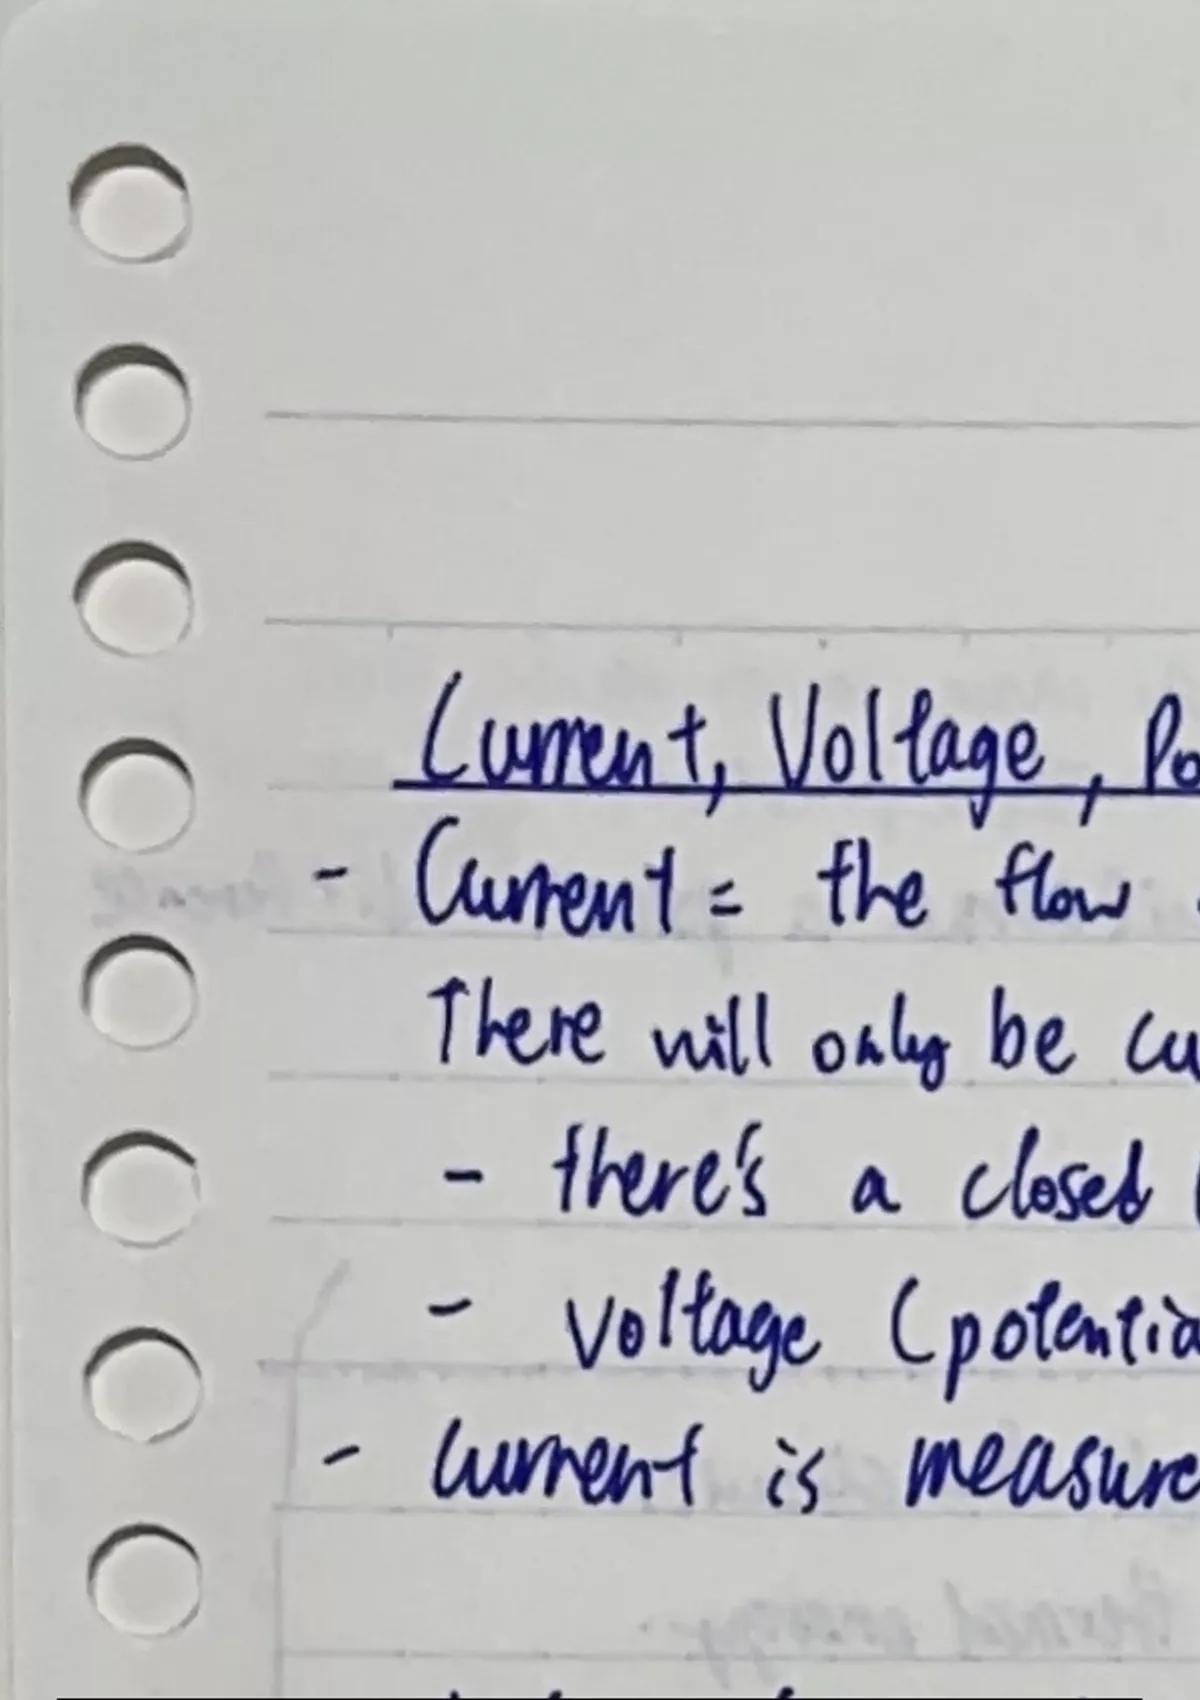 Current, Voltage, Po
- Current = the flow
There will only be cu
- there's a closed
- voltage (potentia
- Current is measure